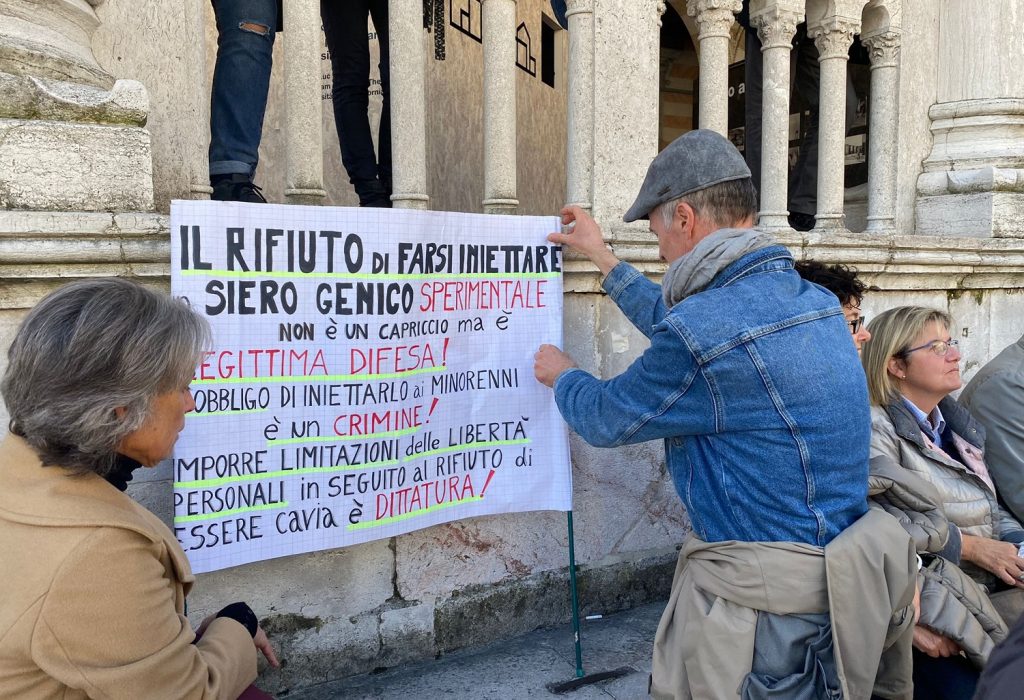 IL RIFIUTO DI FARSI INIETTARE
SIERO GENICO SPERIMENTALE
NON è UN CAPRICCIO ma è
LEGITTIMA DIFESA!
OBBLIGO DI INIETTARLO ai MINORENNI
è UN CRIMINE!
IMPORRE LIMITAZIONI delle LIBERTÀ
PERSONALI in SEGUITO al RIFIUTO di
ESSERE CAVIA è DITTATURA!